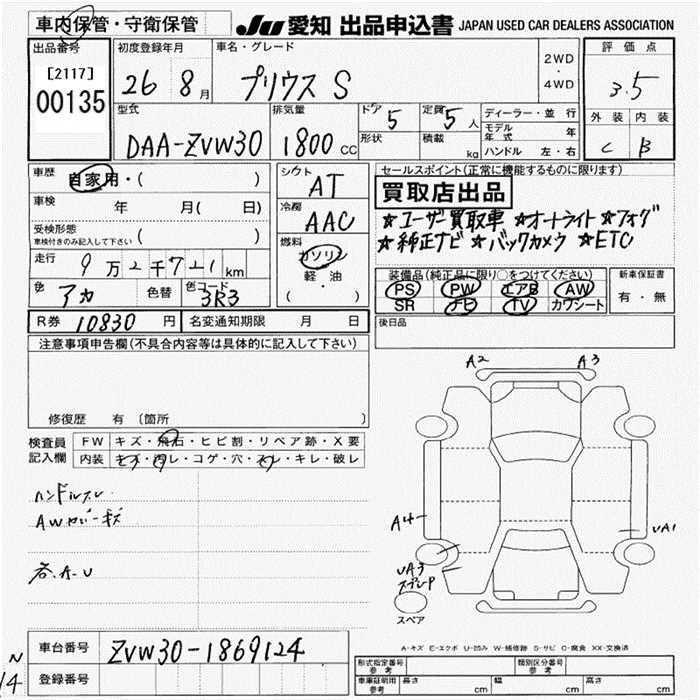 車内保管・守衛保管
JU 愛知 出品申込書 JAPAN USED CAR DEALERS ASSOCIATION
出品番号 [2117] 00135
初度登録年月 26 8月
車名・グレード プリウス S
2WD ・ 4WD
評価点 3.5
外装 C 内装 B
型式 DAA-ZVW30
排気量 1800 CC
ドア 5 定員 5人
形状 積載 kg
ディーラー・並行
モデル年式 年
ハンドル 左・右
車歴 自家用・( )
車検 年 月( 日)
受検形態 車検付きのみ記入して下さい ( )
走行 9万2千721km
色 アカ 色替 色コード 3R3
シフト AT
冷房 AAC
燃料 ガソリン 軽・油 ( ・ )
セールスポイント(正常に機能するものに限ります)
買取店出品
☆ユーザー買取車 ☆オートライト ☆フォグ
☆純正ナビ ☆バックカメラ ☆ETC
装備品(純正品に限り○をつけてください)
PS PW エアB AW
SR ナビ TV カワシート
新車保証書 有・無
R券 10830円 名変通知期限 月 日
後日品
注意事項申告欄(不具合内容等は具体的に記入して下さい)
修復歴 有 〔箇所 〕
検査員記入欄
FW キズ・飛石・ヒビ割・リペア跡・X要
内装 キズ・汚レ・コゲ・穴・スレ・キレ・破レ
ハンドルスレ
AWガリキズ
各.A.U
A2 A3
A4
UA1
UA3
スペア
A-キズ E-エクボ U-凹み W-補修跡 S-サビ C-腐食 XX-交換済
車台番号 ZVW30-1869124
登録番号
N
14
形式指定番号 参考 類別区分番号 参考
車庫証明用 参考 長さ cm 幅 cm 高さ cm